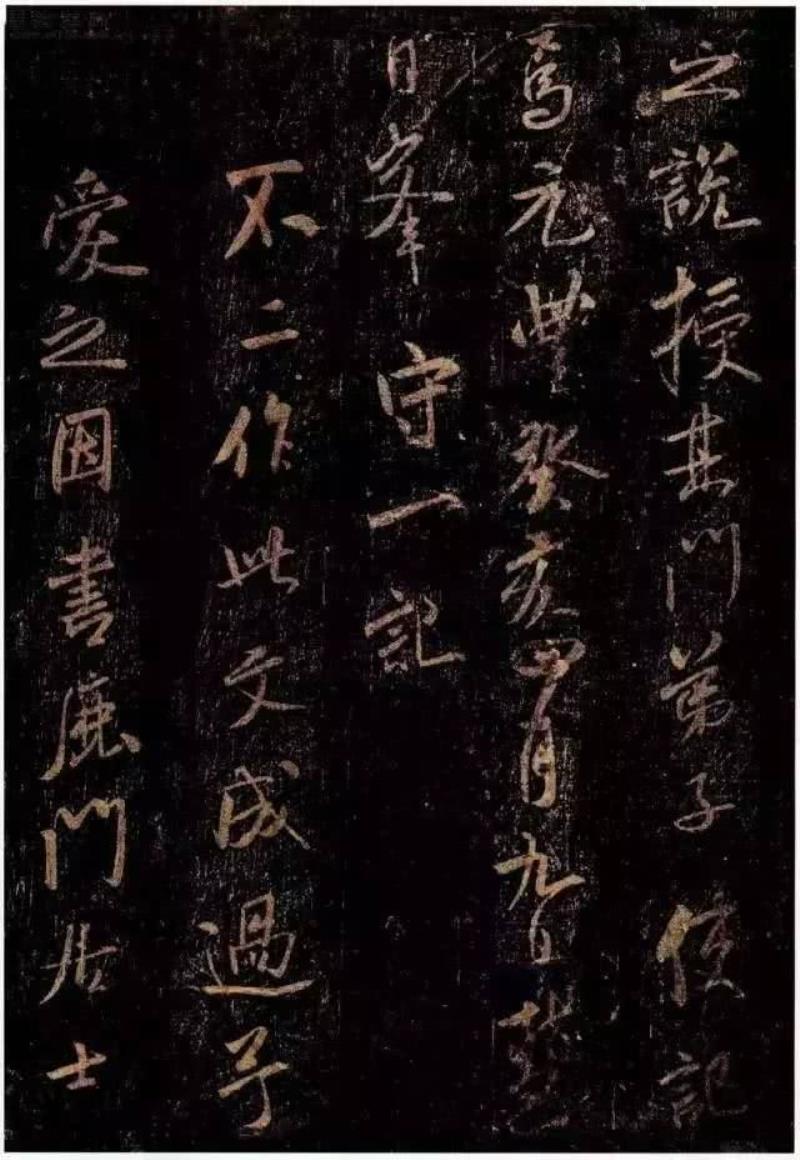 之說授其門弟子使記
焉元豐癸亥四月九日慧
日峯守一記
不二作此文成過予
愛之因書鹿門居士